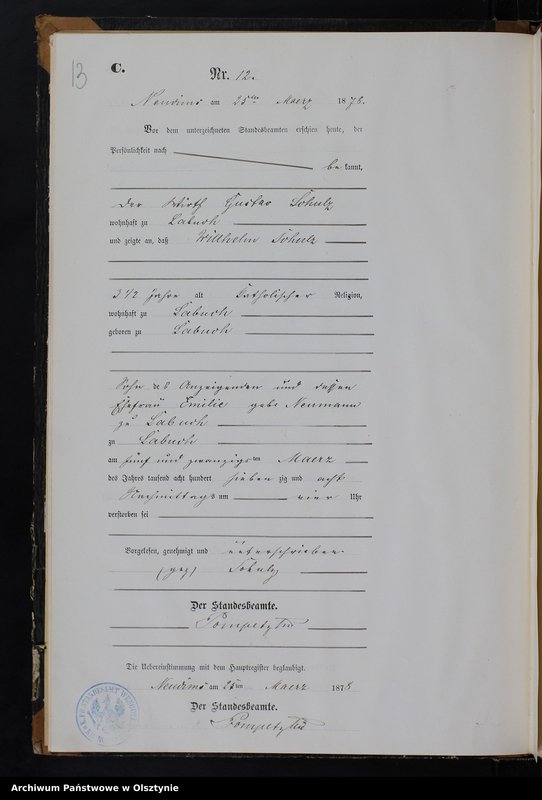 13
C.
Nr. 12.
am 25ten Maerz 1878.
Vor dem unterzeichneten Standesbeamten erschien heute, der
Persönlichkeit nach
bekannt,
der Wirth Gustav Schulz
wohnhaft zu Labuch
und zeigte an, daß Willhelm Schulz
3 1/2 Jahre alt Katholischer Religion,
wohnhaft zu Labuch
geboren zu Labuch
Sohn des Anzeigenden und dessen
Ehefrau Emilie geb. Neumann
zu Labuch
zu Labuch
am fünf und zwanzigsten Maerz
des Jahres tausend acht hundert siebenzig und acht
Nachmittags um vier Uhr
verstorben sei
Vorgelesen, genehmigt und unterschrieben.
(gez) Schulz
Der Standesbeamte.
Die Uebereinstimmung mit dem Hauptregister beglaubigt.
am 25ten Maerz 1878
Der Standesbeamte.
Archiwum Państwowe w Olsztynie